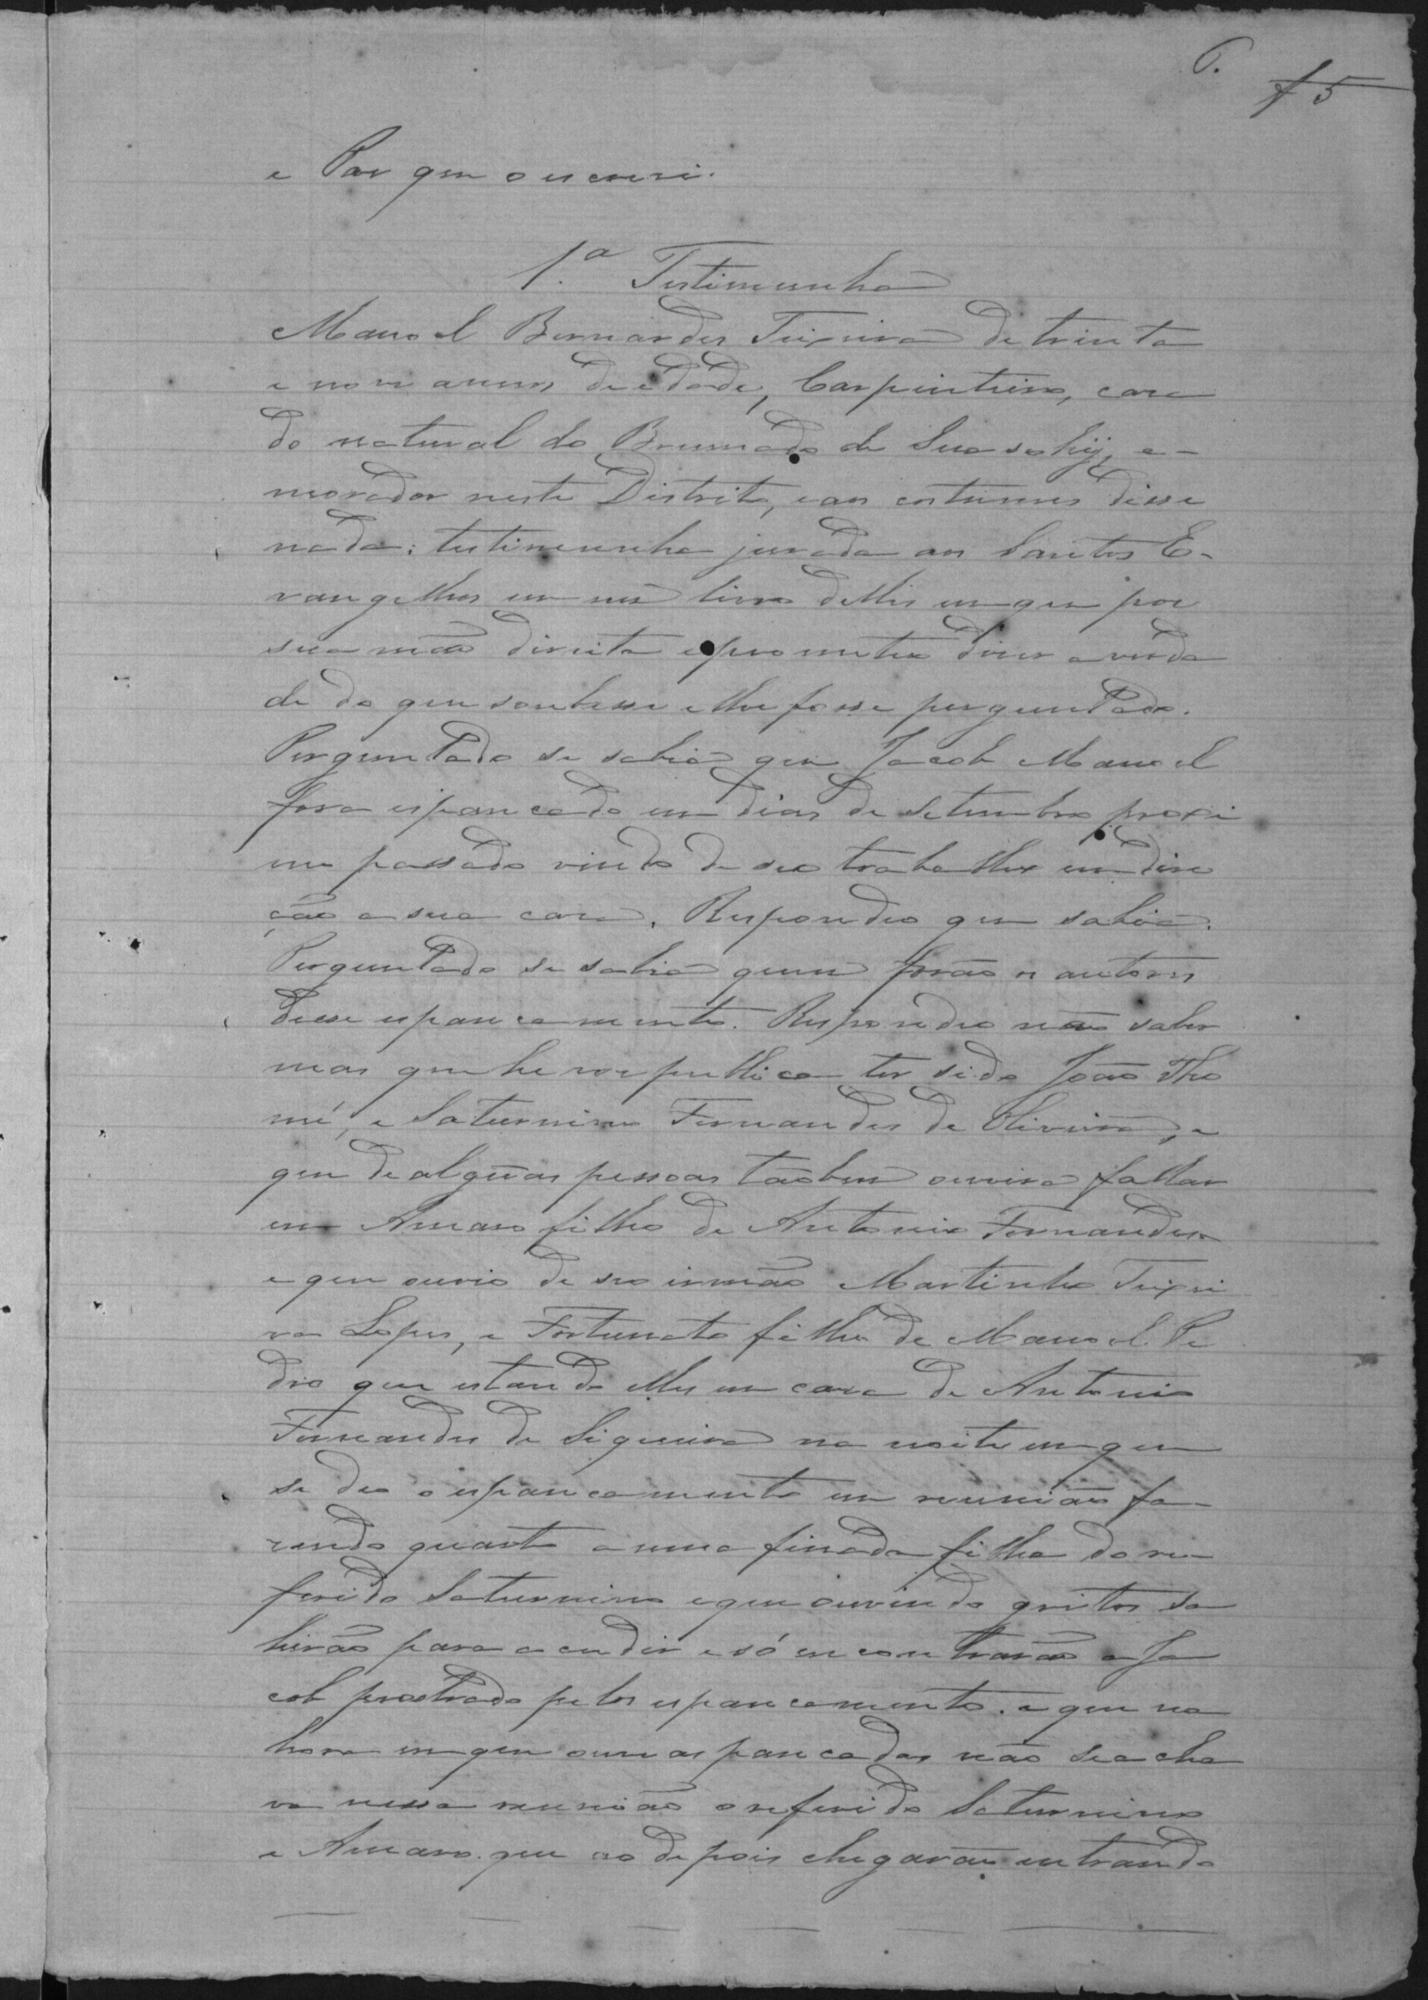 6.
f 5
e Par que o escrevi.
1.ª Testimunha
Manoel Bernardes Teixeira de trinta
e nove annos de edade, Carpinteiro, casa
do natural do Brumado de Suassuhy, e
morador neste Districto, e aos costumes disse
nada; testimunha jurada aos Santos E-
vangelhos em um livro delles em que poz
sua mão direita e prometeu diser a verda
de do que soubesse e lhe fosse perguntado.
Perguntado se sabia que Jacob Manoel
fora espancado em dias de Setembro proxi
mo passado vindo de seo trabalho em dire
ção a sua casa. Respondeo que sabia.
Perguntado se sabia quem forão os autores
desse espancamento. Respondeo não saber
mas que he voz publica ter sido João Tho
mé, e Saturnino Fernandes de Oliveira, e
que de algũas pessoas tãobem ouvira fallar
em Amaro filho de Antonio Fernandes
e que ouvio de seo irmão Martinho Teixei
ra Lopes, e Fortunato filho de Manoel Pe
dro que estando elles em casa de Antonio
Fernandes de Siqueira na noite em que
se deo o espancamento em reunião fa-
zendo quarto a uma finada filha do re-
ferido Saturnino e que ouvindo gritos sa
hirão para acudir e só encontrarão a Ja
cob prostrado pelos espancamento. e que na
hora em que ouve as pancadas não se acha
va nessa reunião o referido Saturnino
e Amaro. que ao depois chegarão entrando